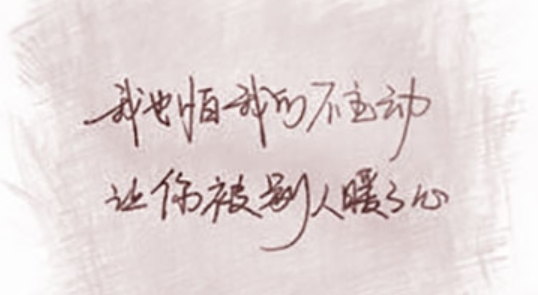 我也怕我的不主动
让你被别人暖了心